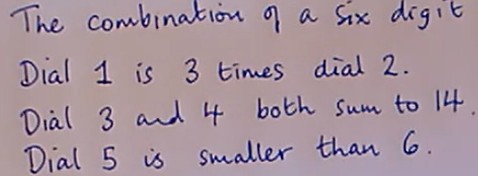 The combination of a six digit
Dial 1 is 3 times dial 2.
Dial 3 and 4 both sum to 14.
Dial 5 is smaller than 6.